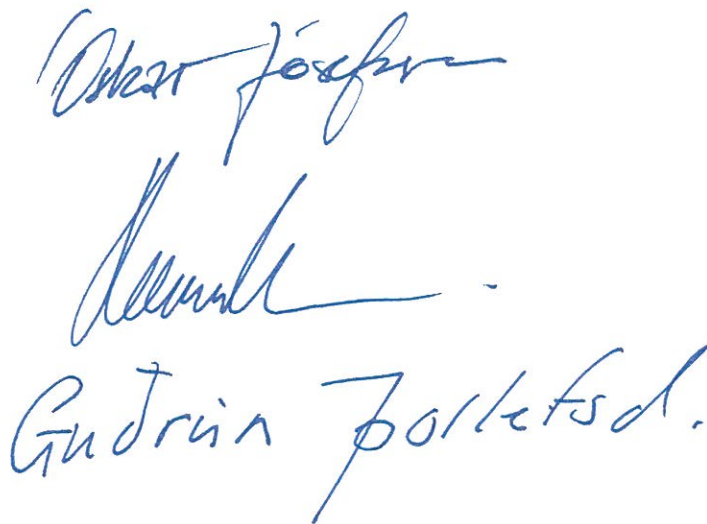 Óskar Jósefsson
Guðrún Þorleifsd.